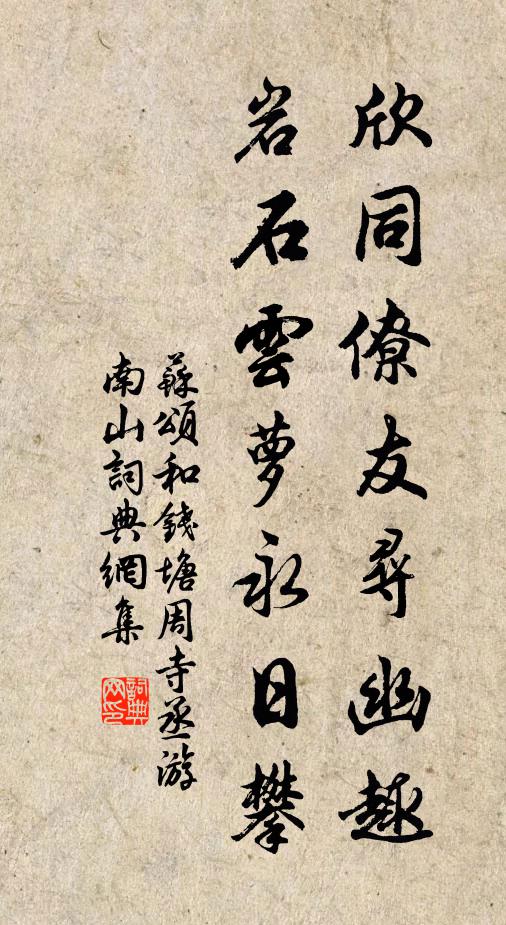 欣同僚友尋幽趣
岩石雲萝永日攀
蘇頌和錢塘周寺丞游
南山詞典網集
詞典
网印